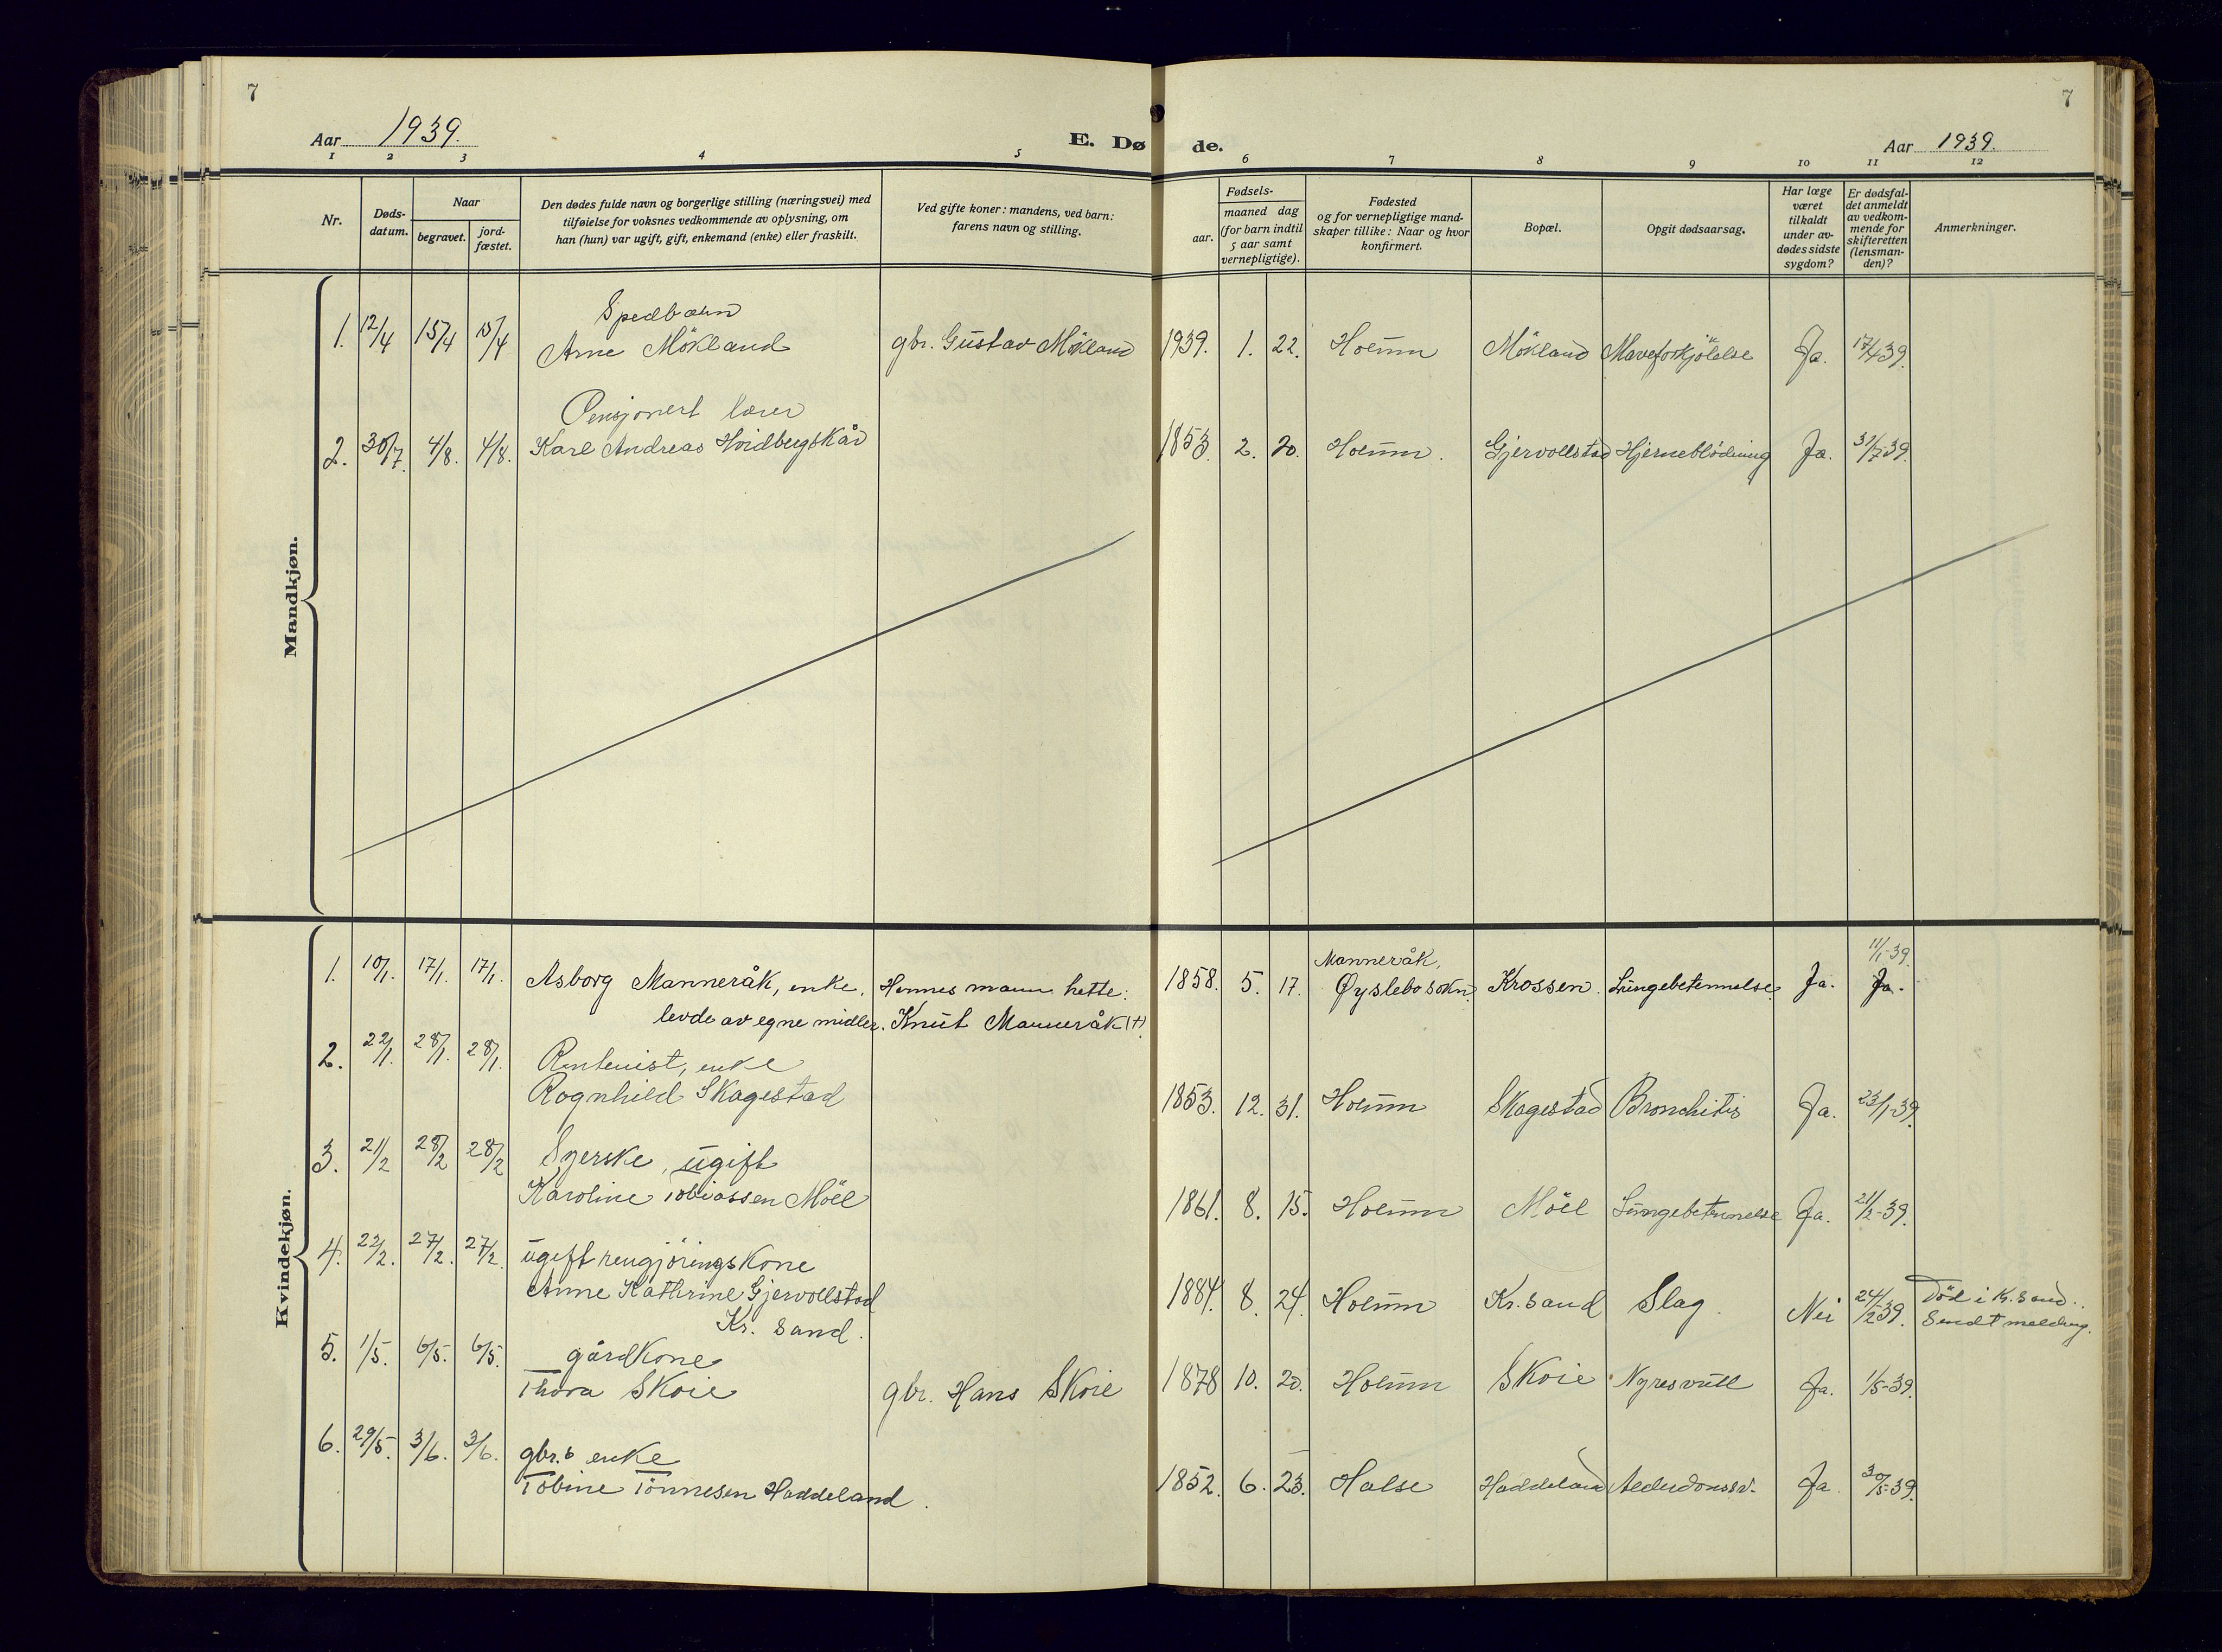 7
7
Aar 1939.
E. Dø
de.
Aar 1939.
1 2 3 4 5
6 7 8 9 10 11 12
Nr.
Døds-
datum.
Naar
begravet.
jord-
fæstet.
Den dødes fulde navn og borgerlige stilling (næringsvei) med
tilføielse for voksnes vedkommende av oplysning, om
han (hun) var ugift, gift, enkemand (enke) eller fraskilt.
Ved gifte koner: mandens, ved barn:
farens navn og stilling.
Fødsels-
aar.
maaned dag
(for barn indtil
5 aar samt
vernepligtige).
Fødested
og for vernepligtige mand-
skaper tillike: Naar og hvor
konfirmert.
Bopæl.
Opgit dødsaarsag.
Har læge
været
tilkaldt
under av-
dødes sidste
sygdom?
Er dødsfal-
det anmeldt
av vedkom-
mende for
skifteretten
(lensman-
den)?
Anmerkninger.
Mandkjøn.
Spedbarn
1. 12/4 15/4 15/4 Arne Mökland gbr. Gustav Mökland 1939. 1. 22. Holum Mökland Maveforkjölelse Ja. 17/4 39.
Pensjonert lærer
2. 30/7. 4/8. 4/8. Karl Andreas Hvidbergskår 1853. 2. 20. Holum. Gjervollstad Hjerneblödning Ja. 31/7-39.
Kvindekjøn.
1. 10/1. 17/1. 17/1. Asborg Manneråk, enke. Hennes mann hette: 1858. 5. 17. Manneråk, Krossen. Lungebetennelse. Ja. 11/1-39.
levde av egne midler. Knut Manneråk (†) Øyslebø sokn. Ja.
2. 22/1. 28/1. 28/1. Rentenist, enke
Rognhild Skagestad 1853. 12. 31. Holum Skagestad Bronchitis Ja. 23/1-39.
3. 21/2 28/2 28/2 Syerske, ugift
Karoline Tobiassen Möll 1861. 8. 15. Holum Möll Lungebetennelse Ja. 21/2-39.
4. 22/2. 27/2. 27/2. ugift rengjöringskone
Anne Kathrine Gjervollstad 1884. 8. 24. Holum Kr.sand Slag. Nei 24/2 39. Död i Kr.sand..
Kr. sand. Sendt melding.
5. 1/5. 6/5. 6/5. gårdkone
Thora Skoie gbr. Hans Skoie 1878 10. 20. Holum Skoie Nyresvull Ja. 1/5-39.
6. 29/5. 3/6. 3/6. gbr.s enke
Tobine Tönnesen Haddeland. 1852. 6. 23. Halse Haddeland Ja 30/5-39.